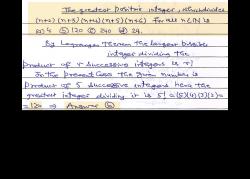 The greatest positive integer, which divides
(n+2)(n+3)(n+4)(n+5)(n+6) for all n∈IN is
a) 4 b) 120 c) 240 d) 24.
By Lagranges Teorem the largest Positive
integer dividing the
product of r successive integers is r!
In the present case the given number is
product of 5 successive integers hence the
greatest integer dividing it is 5! = (5)(4)(3)(2)=
=120 ⇒ Answer b